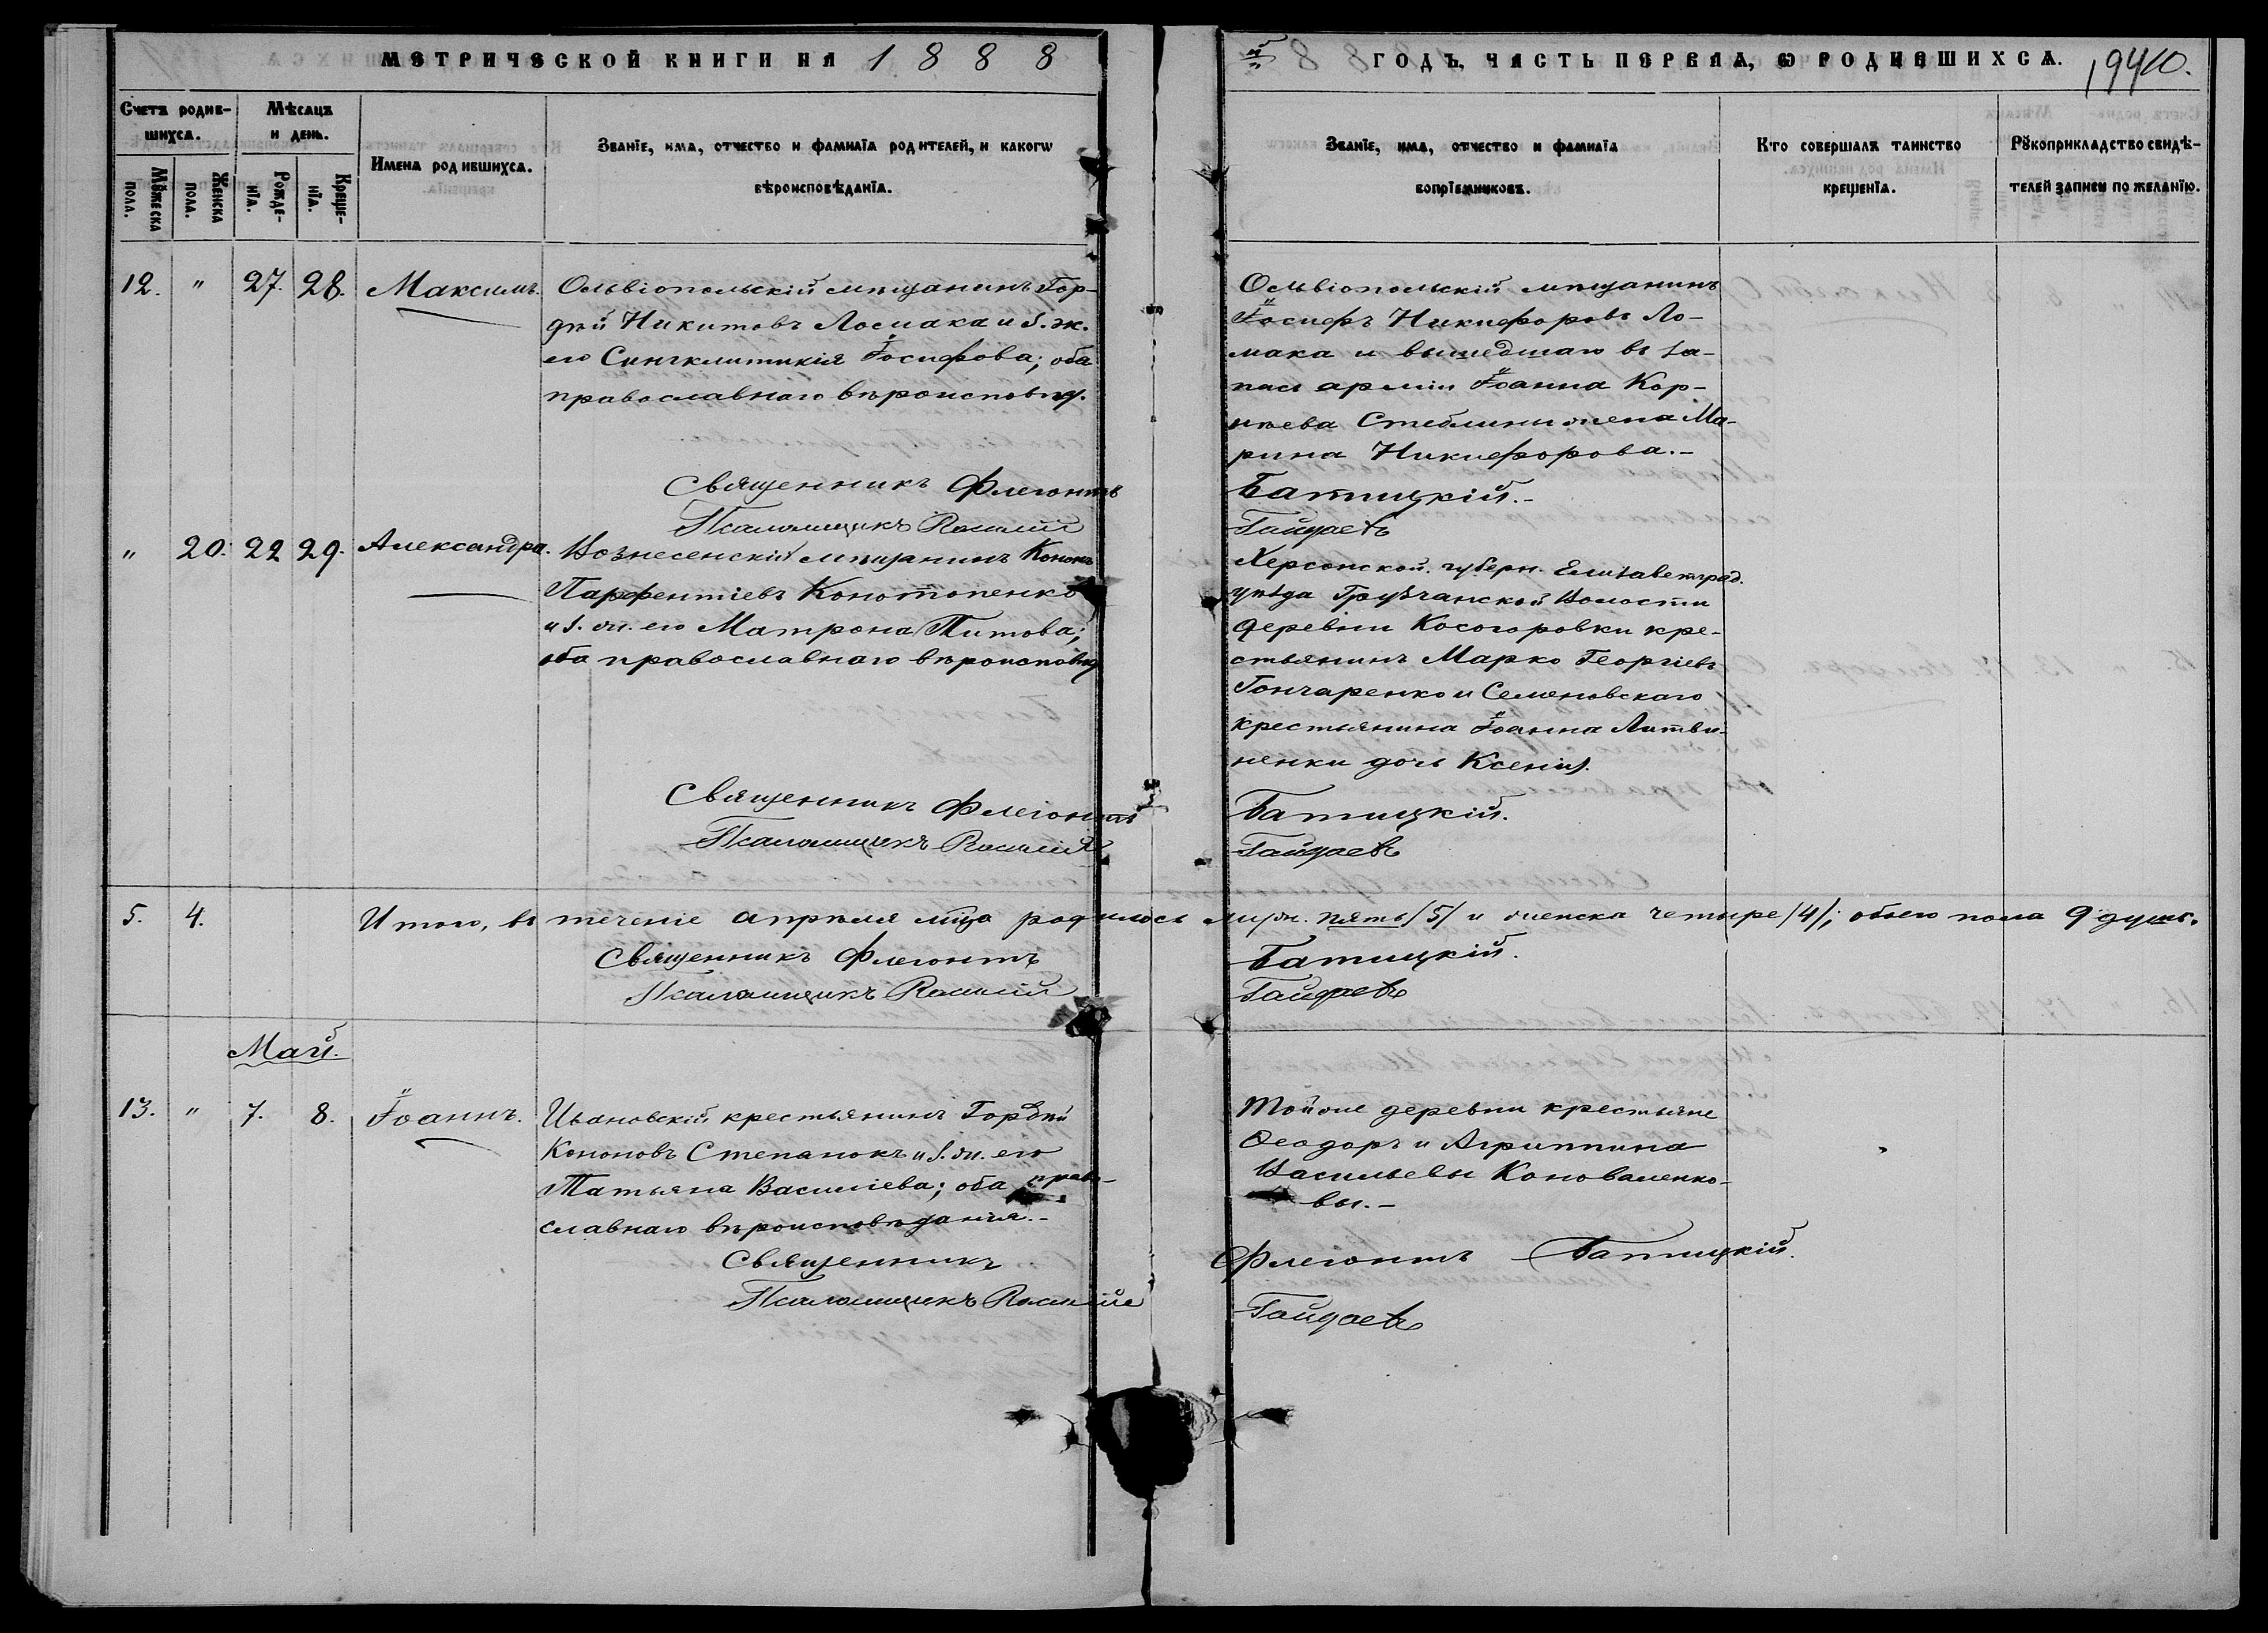 МЕТРИЧЕСКОЙ КНИГИ НА 1888
й ГОДЪ, ЧАСТЬ ПЕРВАЯ, Ѡ РОДИВШИХСЯ.
Счетъ родив-
шихся.
Мѣсяцъ
и день.
Мꙋжеска
пола.
Женска
пола.
Рожде-
нїя.
Креще-
нїя.
Имена родившихся.
Званїе, имя, отчество и фамилїя родителей, и какогѡ
вѣроисповѣданїя.
Званїе, имя, отчество и фамилїя
воспрїемниковъ.
Кто совершалъ таинство
крещенїя.
Рꙋкоприкладство свидѣ-
телей записи по желанїю.
12. " 27. 28. Максимъ.
Ольвіопольскій мѣщанинъ Гор-
дѣй Никитовъ Ломака и з. ж.
его Синклитикія Іосифова; оба
православнаго вѣроисповѣд.
Ольвіопольскій мѣщанинъ
Іосифъ Никифоровъ Ло-
мака и вышедшаго въ за-
пасъ арміи Іоанна Кор-
нѣева Стеблины жена Ма-
рина Никифорова.-
Священникъ Флегонтъ Батицкій.-
Псаломщикъ Василій Гайдаевъ
" 20. 22 29. Александра.
Вознесенскій мѣщанинъ Кононъ
Парфентіевъ Конотопенко
и з. ж. его Матрона Титова;
оба православнаго вѣроисповѣд
Херсонской губерн. Елизаветград.
уѣзда Грузчанской Волости
деревни Косогоровки кре-
стьянинъ Марко Георгіевъ
Гончаренко и Семеновскаго
крестьянина Іоанна Литви-
ненки дочь Ксенія.
Священникъ Флегонтъ Батицкій.
Псаломщикъ Василій Гайдаевъ
5. 4. Итого, въ теченіе апрѣля мѣца родилось муж. пять /5/ и женска четыре /4/; обоего пола 9 душъ.
Священникъ Флегонтъ Батицкій.
Псаломщикъ Василій Гайдаевъ
Май.
13. " 7. 8. Іоаннъ.
Ивановскій крестьянинъ Гордѣй
Кононовъ Степанокъ и з. ж. его
Татьяна Василіева; оба право-
славнаго вѣроисповѣданія.-
Тойже деревни крестьяне
Ѳеодоръ и Агриппина
Васильевы Коноваленко-
вы.-
Священникъ Флегонтъ Батицкій.
Псаломщикъ Василій Гайдаевъ